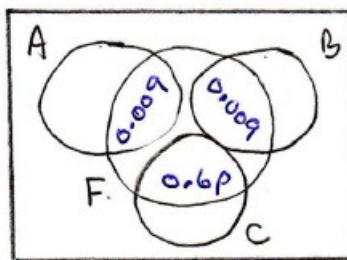 A
B
0.009
0.009
0.6p
F
C